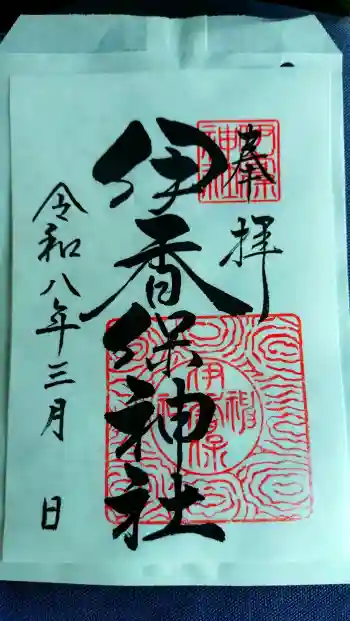 奉拝
伊香保神社
令和八年三月 日
伊香保